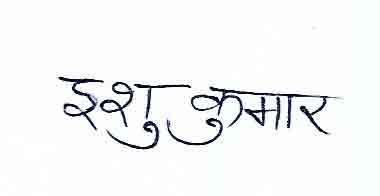 इशु कुमार